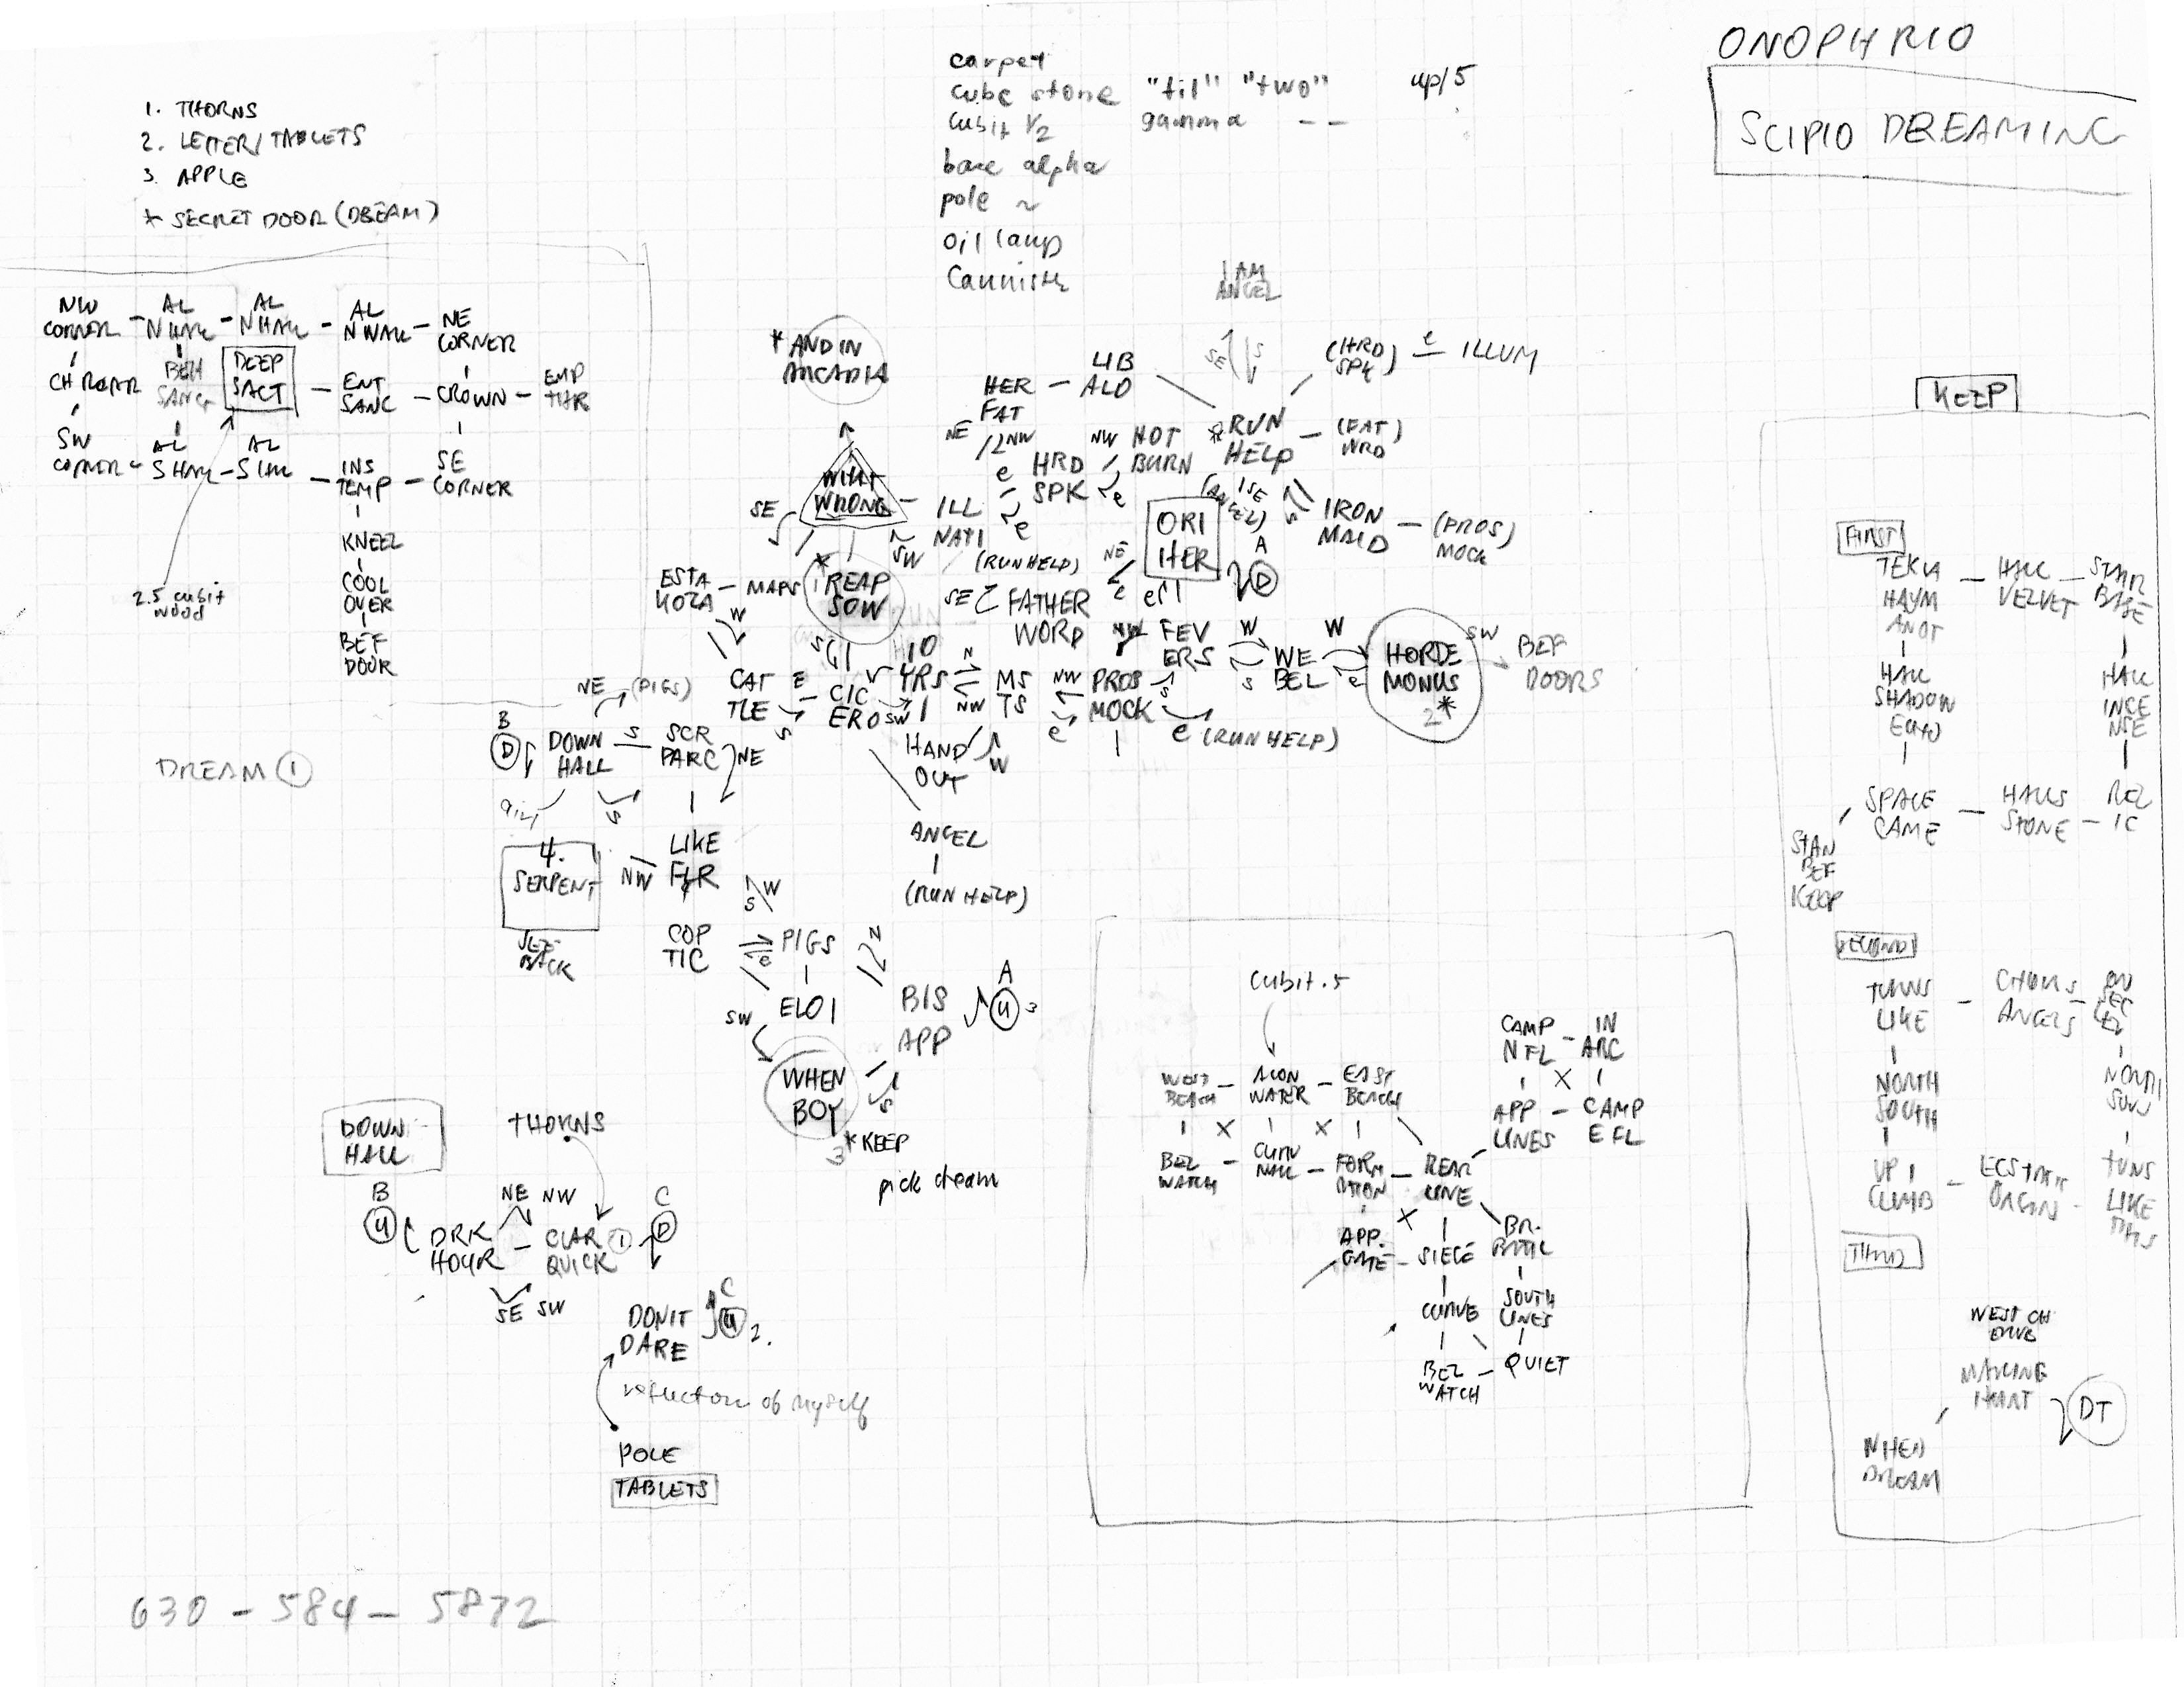 ONOPHRIO
SCIPIO DREAMING
carpet
cube stone "til" "two" up/5
cubit 1/2 gamma - -
base alpha
pole ~
oil lamp
1. THORNS
2. LETTER/TABLETS
3 APPLE
* SECRET DOOR (DREAM)
NW CORNER
AL N WALL
AL N WALL
AL N WALL
NE CORNER
DEEP SACT
ENT SANC
CROWN
SW CORNER
AL S WALL
AL
INS TEMP
SE CORNER
KNEEL
COOL OVER
BEF DOOR
2.5 cubit wood
I AM ANGEL
* AND IN ARCADIA
HER FAT
LIB ALD
(HRD SPK) e ILLUM
NE
NW
NOT BURN
RUN HELP
(FAT) WRD
HRD SPK
WHAT WRONG
ILL NATI
SE
SW
ORI HER
(ANGEL)
IRON MAID
(PROS) MOCK
(RUN HELP)
A
D
ESTA
MAPS
REAP SOW
FATHER WORD
FEV ERS
WE BEL
HORDE MONUS
* 2
SW
BEF DOORS
10 YRS
MS TS
PROS MOCK
CAT TLE
CIC ERO
HAND OUT
e (RUN HELP)
NE (PIGS)
B
D
DOWN HALL
SCR PARC
NE
DREAM 1
LIKE FLR
ANGEL
(RUN HELP)
4. SERPENT
NW
COP TIC
PIGS
ELOI
SW
BIS APP
A
U 3
WHEN BOY
3 * KEEP
pick dream
DOWN HALL
THORNS
B
U
DRK HOUR
NE NW
CLAR QUICK
1
C
D
SE SW
DON'T DARE
C
U 2.
reflection of myself
POLE
TABLETS
cubit .5
WEST BEACH
WATER
EAST BEACH
CAMP NFL
IN ARC
APP LINES
CAMP EFL
BEL WATCH
FORM ATION
REAR LINE
APP. GATE
SIEGE
CURVE
SOUTH LINES
BEL WATCH
QUIET
KEEP
FIRST
TEKLA HAYM ANOT
HALL VELVET
STAIR BASE
HALL SHADOW ECHO
HALL INCE NSE
SPACE CAME
HALLS STONE
REL IC
STAN BEF KEEP
SECOND
TURNS LIKE
ANGELS
NORTH SOUTH
UP I CLIMB
TURNS LIKE
THIRD
WEST CH
WHEN DREAM
DT
630 - 584 - 5872